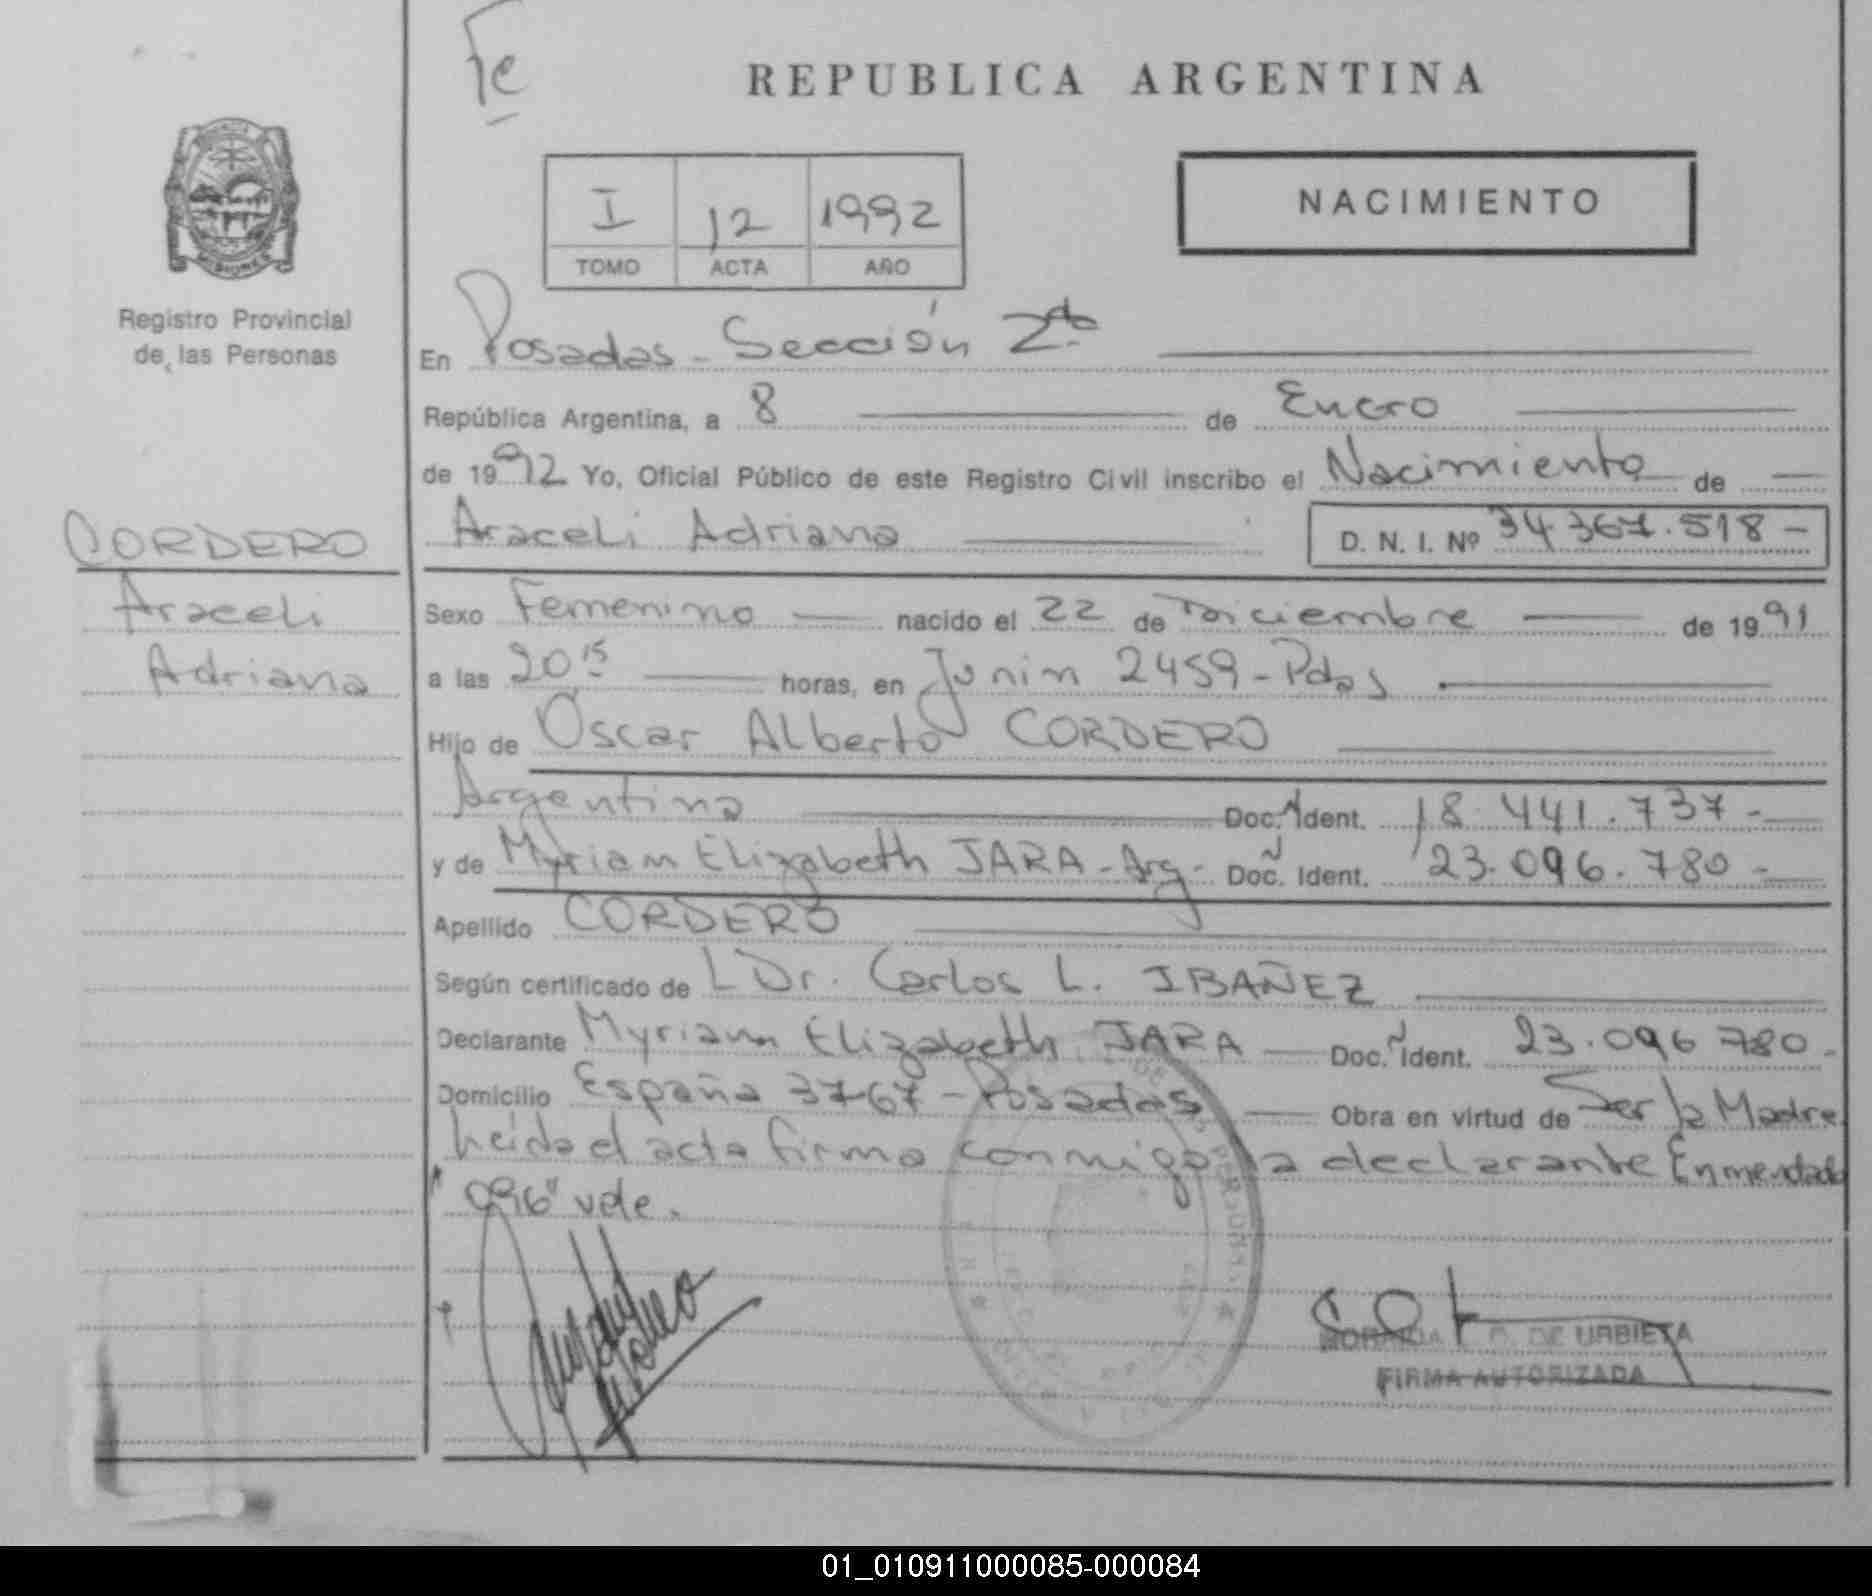 Fe
REPUBLICA ARGENTINA
NACIMIENTO
I 12 1992
TOMO ACTA AÑO
MISIONES
Registro Provincial
de las Personas
CORDERO
Araceli
Adriana
En Posadas - Sección 2da
República Argentina, a 8 de Enero
de 1992 Yo, Oficial Público de este Registro Civil inscribo el Nacimiento de
Araceli Adriana D. N. I. Nº 34.367.518-
Sexo Femenino nacido el 22 de Diciembre de 1991
a las 20 15 horas, en Junin 2459 - Pdas
Hijo de Oscar Alberto CORDERO
Argentina Doc. Ident. 18.441.737-
y de Myriam Elizabeth JARA - Arg- Doc. Ident. 23.096.780-
Apellido CORDERO
Según certificado de L Dr. Carlos L. IBAÑEZ
Declarante Myriam Elizabeth JARA Doc. Ident. 23.096 780-
Domicilio España 3767 - Posadas Obra en virtud de Ser la Madre.
Leida el acta firma conmigo la declarante Enmendado
"096" vale.
DE URBIETA
FIRMA AUTORIZADA
01_010911000085-000084